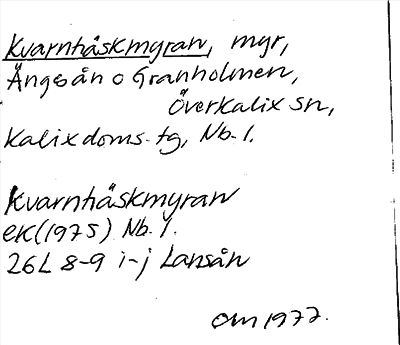 Kvarnhåskmyran, myr,
Ängesån o Granholmen,
Överkalix sn,
Kalix doms. tg, Nb. l.
Kvarnhåskmyran
ek (1975) Nb. l.
26L 8-9 i-j Lansån
OM 1977.